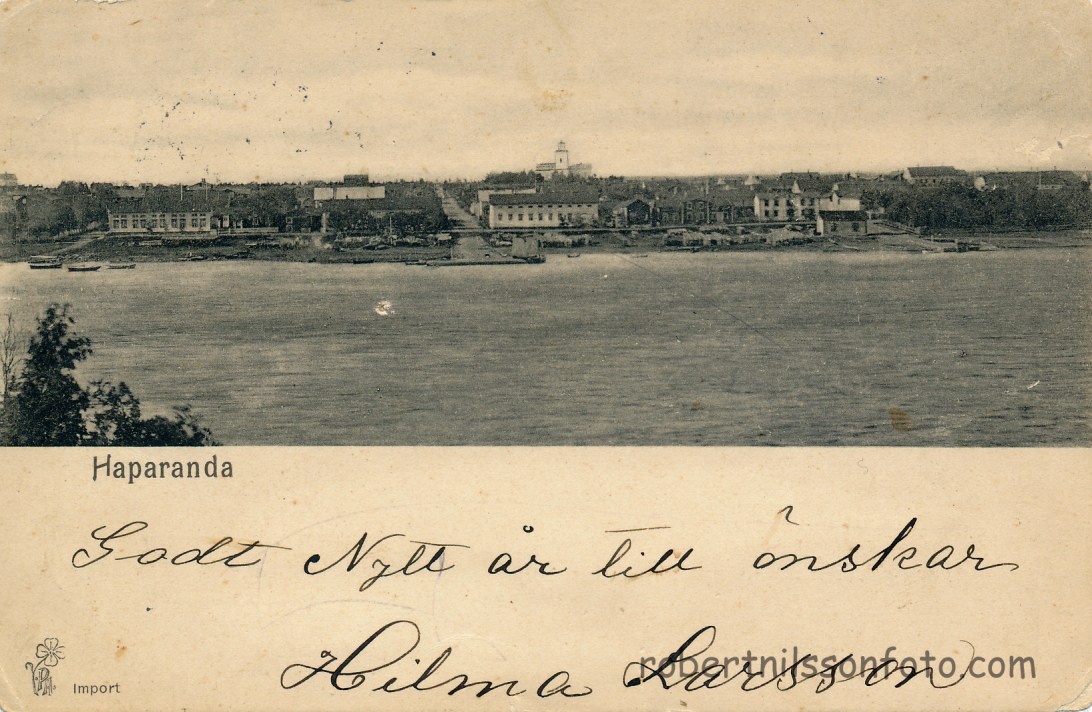 Haparanda
Godt Nytt år till önskar
Hilma Larsson
robertnilssonfoto.com
Import